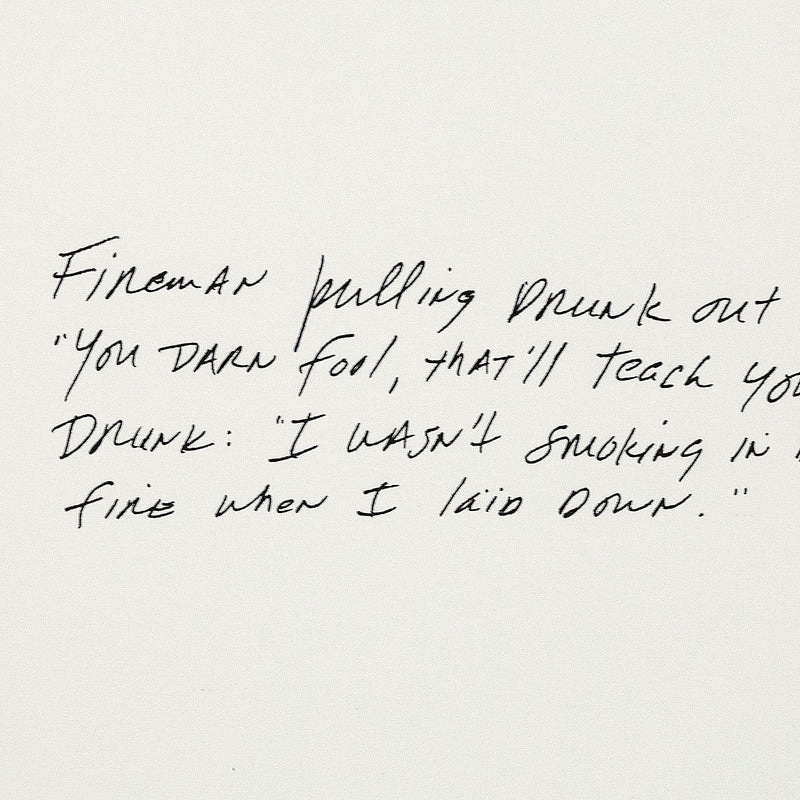 Fireman pulling Drunk out
"You DARN fool, thAT'll teach you
Drunk: "I wASN't smoking in
fire when I laid Down."